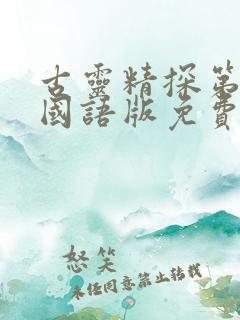 古靈精探第
國語版免費
怒笑
未经同意禁止转载